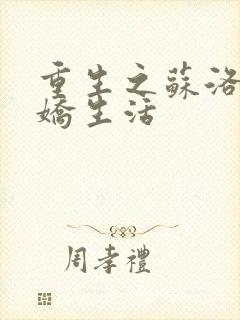 重生之蘇洛
嬌生活
周孝禮